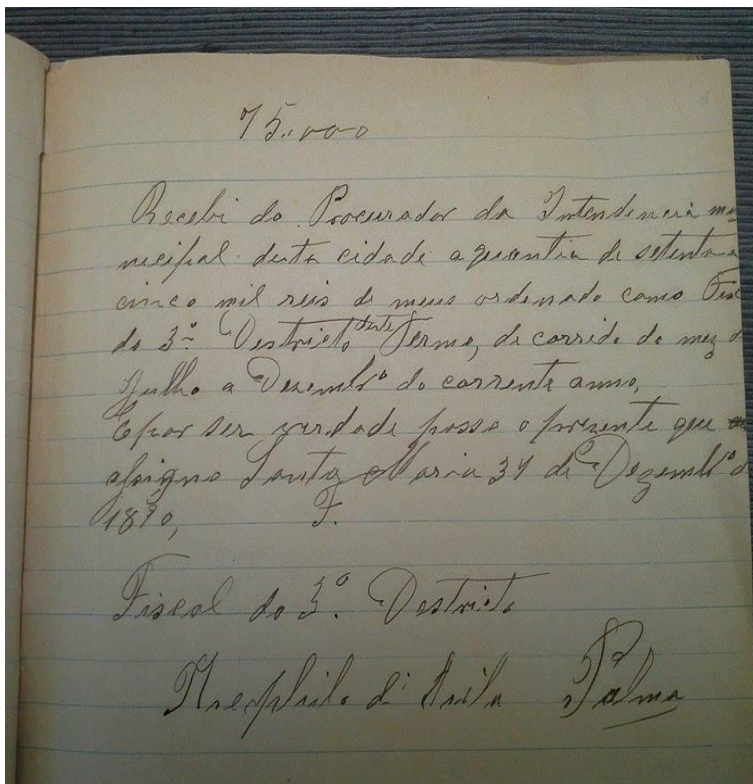 75.000
Recebi do Procurador da Intendencia mu
necipal desta cidade a quantia de setenta e
cinco mil reis de meus ordenado como Fisc
do 3º Destricto deste Termo, de corrido do mez d
Julho a Dezembrº do corrente anno,
E por ser verdade posso o prezente que
assigno Santa Maria 31 de Dezembrº d
1890, F.
Fiscal do 3º. Destricto
Theophilo d' Avila Palma